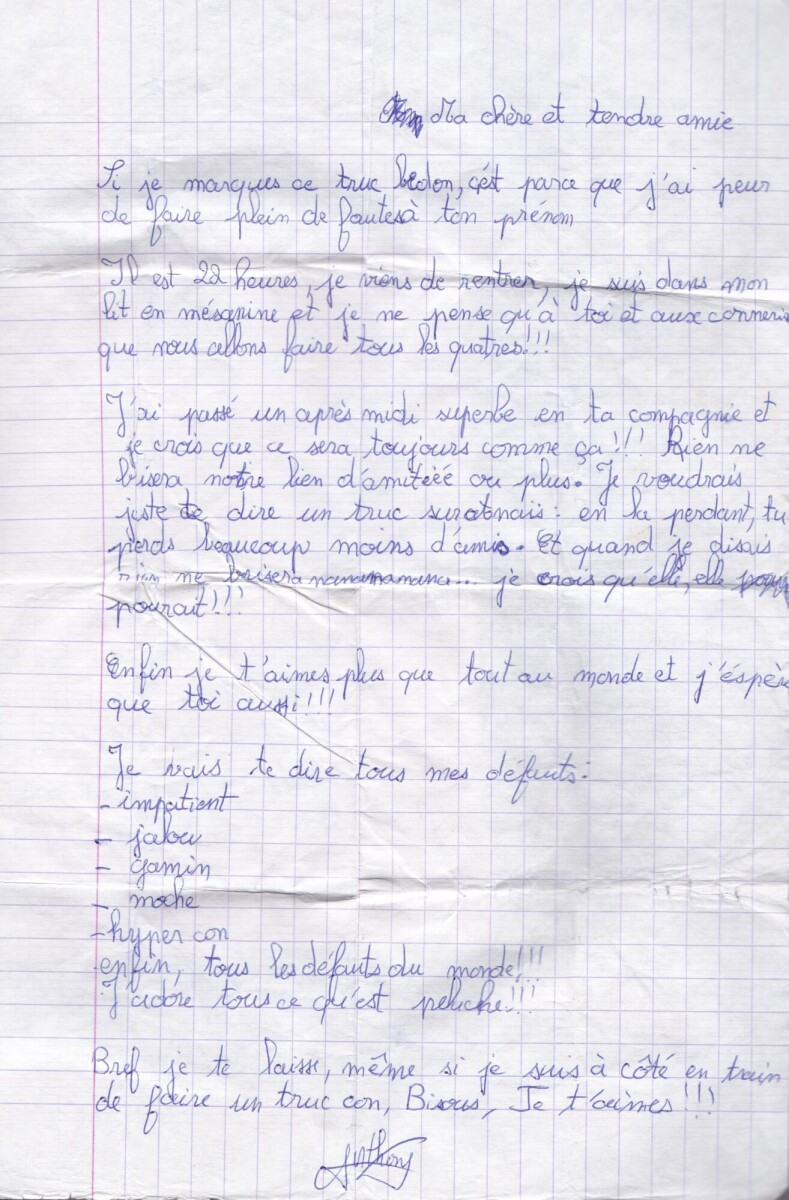 Ma chère et tendre amie
Si je marques ce truc bidon, c'ést parce que j'ai peur
de faire plein de fautesà ton prénom
Il est 22 heures, je viens de rentrer, je suis dans mon
lit en mésanine et je ne pense qu'à toi et aux conneries
que nous allons faire tous les quatres!!!
J'ai passé un après midi superbe en ta compagnie et
je crois que ce sera toujours comme ça!!! Rien ne
brisera notre lien d'amitiéé ou plus. Je voudrais
juste te dire un truc : en la perdant, tu
perds beaucoup moins d'amis. Et quand je disais
rien ne brisera nanananana... je crois qu'elle, elle
pourait!!!
Enfin je t'aimes plus que tout au monde et j'éspère
que toi aussi!!!
Je vais te dire tous mes défauts:
- impatient
- jalou
- gamin
- moche
- hyper con
enfin, tous les défauts du monde!!!
J'adore tous ce qu'est peluche!!!
Bref je te laisse, même si je suis à côté en train
de faire un truc con, Bisous, Je t'aimes!!!
Anthony